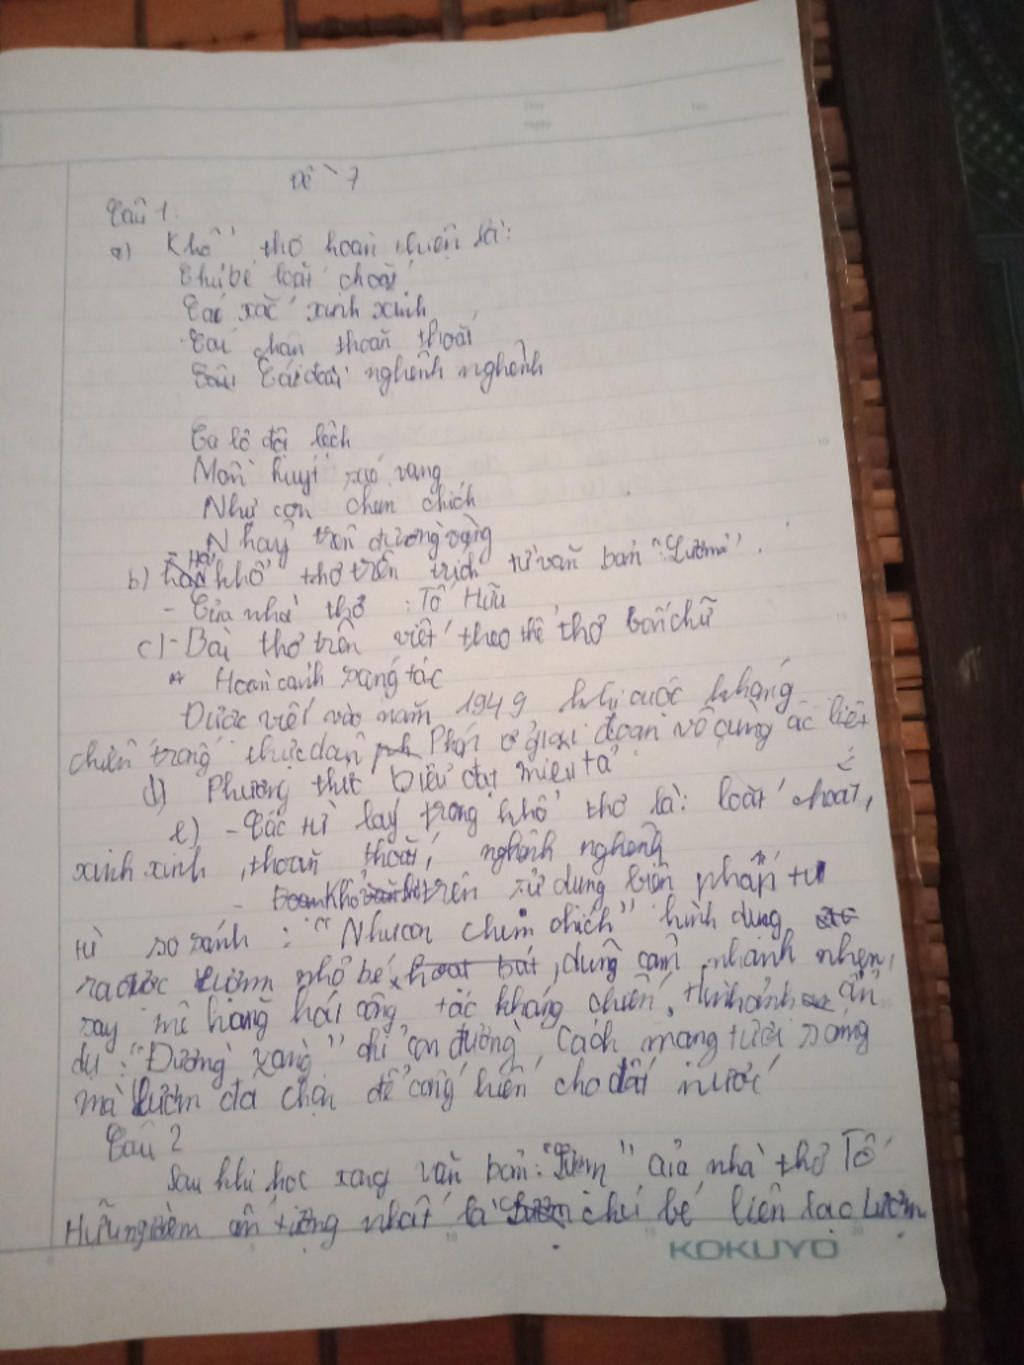 Đề 7
Câu 1.
a) Khổ thơ hoàn thiện là:
Chú bé loắt choắt
Cái xắc xinh xinh
Cái chân thoăn thoắt
Cái đầu nghênh nghênh
Ca lô đội lệch
Mồm huýt sáo vang
Như con chim chích
Nhảy trên đường vàng
b) Hai khổ thơ trên trích từ văn bản "Lượm".
- Của nhà thơ : Tố Hữu
c) - Bài thơ trên viết theo thể thơ bốn chữ
* Hoàn cảnh sáng tác
Được viết vào năm 1949 khi cuộc kháng
chiến trong thực dân Pháp ở giai đoạn vô cùng ác liệt
d) Phương thức biểu đạt miêu tả
e) - Các từ láy trong khổ thơ là: loắt choắt,
xinh xinh, thoăn thoắt, nghênh nghênh
- Khổ trên sử dụng biện phấp tu
từ so sánh : "Như con chim chích" hình dung
ra được Lượm nhỏ bé, dũng cảm nhanh nhẹn,
say mê hăng hái công tác kháng chiến. Hình ảnh ẩn
dụ : "Đường vàng" chỉ con đường Cách mạng tươi sáng
mà Lượm đã chọn để cống hiến cho đất nước
Câu 2
Sau khi học xong văn bản: "Lượm" của nhà thơ Tố
Hữu ấn tượng nhất là chú bé liên lạc Lượm
KOKUYO